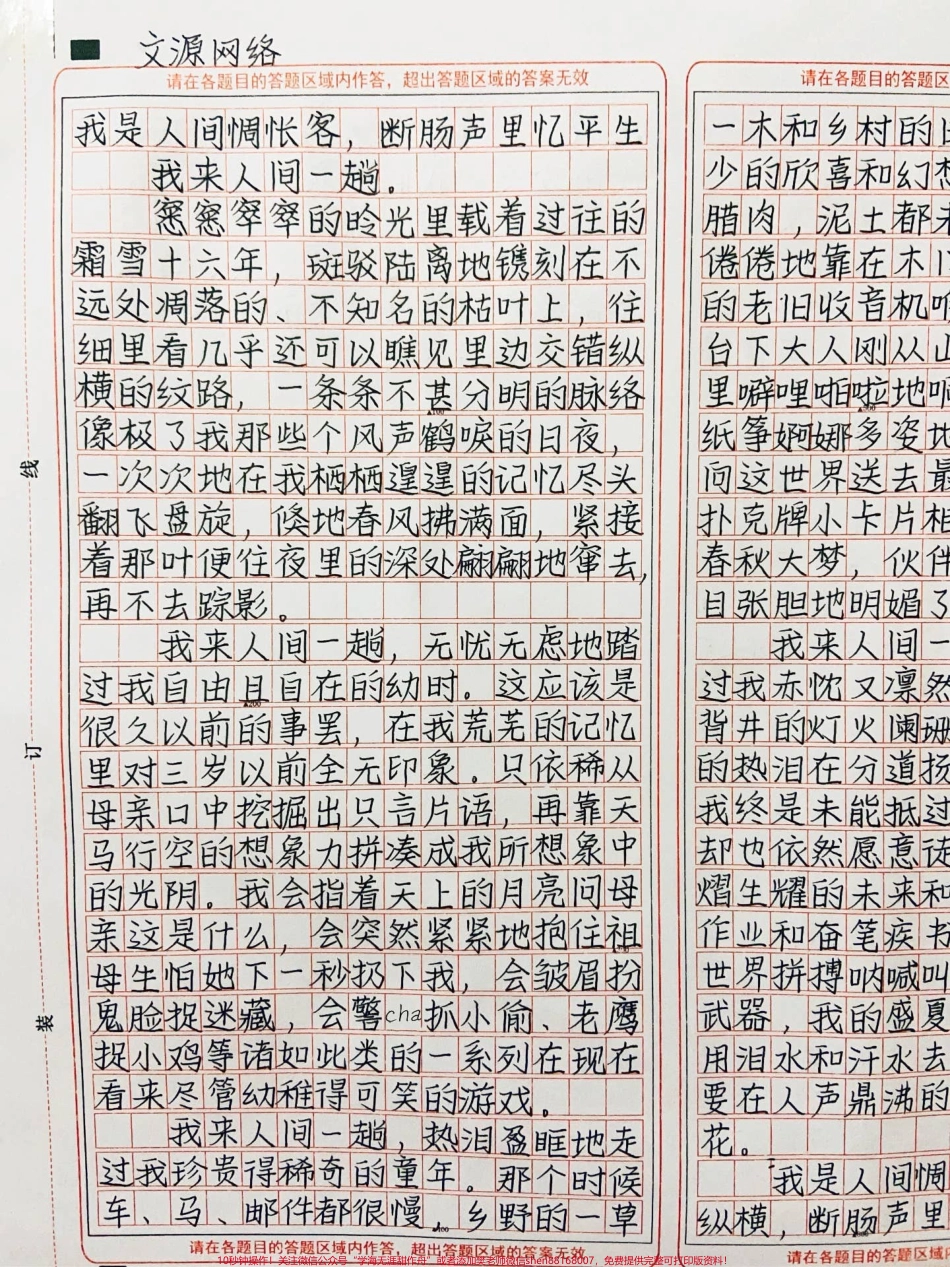 文源网络
请在各题目的答题区域内作答，超出答题区域的答案无效
我是人间惆怅客，断肠声里忆平生
我来人间一趟。
窸窸窣窣的呤光里载着过往的
霜雪十六年，斑驳陆离地镌刻在不
远处凋落的、不知名的枯叶上，往
细里看几乎还可以瞧见里边交错纵
横的纹路，一条条不甚分明的脉络
像极了我那些个风声鹤唳的日夜，
一次次地在我栖栖遑遑的记忆尽头
翻飞盘旋，倏地春风拂满面，紧接
着那叶便往夜里的深处翩翩地窜去，
再不去踪影。
我来人间一趟，无忧无虑地踏
过我自由且自在的幼时。这应该是
很久以前的事罢，在我荒芜的记忆
里对三岁以前全无印象。只依稀从
母亲口中挖掘出只言片语，再靠天
马行空的想象力拼凑成我所想象中
的光阴。我会指着天上的月亮问母
亲这是什么，会突然紧紧地抱住祖
母生怕她下一秒扔下我，会皱眉扮
鬼脸捉迷藏，会警cha抓小偷、老鹰
捉小鸡等诸如此类的一系列在现在
看来尽管幼稚得可笑的游戏。
我来人间一趟，热泪盈眶地走
过我珍贵得稀奇的童年。那个时候
车、马、邮件都很慢。乡野的一草
请在各题目的答题区域内作答，超出答题区域的答案无效
请在各题目的答题区
一木和乡村的
少的欣喜和幻想
腊肉，泥土都未
倦倦地靠在木
的老旧收音机
台下大人刚从山
里噼哩啪啦地响
纸筝婀娜多姿地
向这世界送去最
扑克牌小卡片相
春秋大梦，伙伴
目张胆地明媚了
我来人间一
过我赤忱又凛然
背井的灯火阑珊
的热泪在分道扬
我终是未能抵过
却也依然愿意徒
熠生耀的未来和
作业和奋笔疾书
世界拼搏呐喊叫
武器，我的盛夏
用泪水和汗水去
要在人声鼎沸的
花。
我是人间惆
纵横，断肠声里
请在各题目的答题区
线
订
装
10秒钟操作！关注微信公众号“学海无涯甜作舟”或者添加吴老师微信shen88168007，免费提供完整可打印版资料！